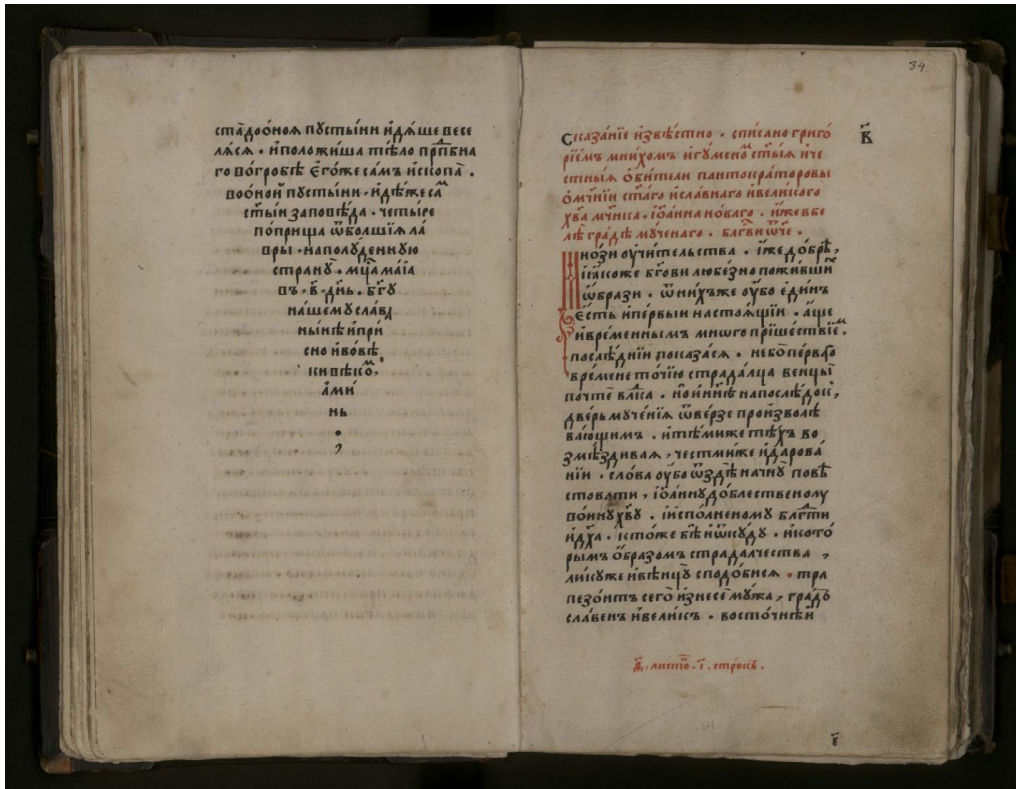 ста́доо́ноя пꙋсты́ни и́дꙗ́ше весе
лꙗ́сѧ · и҆положи́ша тѣ́ло прп҃бна
го во́гробѣ є҆го́же са́мъ и҆скопа̀ ·
воо́ной пꙋсты́ни · и҆дѣ́же са
сты́и заповѣ́да · четы́ре
по́прища ѿбо́лшїѧ ла́
вры · наполꙋ́денную
странꙋ̀ · мц҃а ма́їа
въ · в҃ · дн҃ь · бг҃ꙋ
на́шемꙋ сла́ва
ны́нѣ и҆при
сно и҆во́вѣ
ки вѣко́ ·
а҆ми́
нь
34
Сказа́нїе и҆звѣ́стно · спи́сано григо́
рїемъ мни́хомъ и҆гꙋ́мено сты́ѧ и҆че
стны́ѧ ѻ҆би́тели пантокра́торовы
ѡ҆ мч҃нїи ст҃а́го и҆сла́внаго и҆вели́кого
хв҃а мч҃нка · і҆ѡа́нна но́ваго · и҆́же вбе
лѣ гра́дѣ мꙋ́ченаго · блг҃ви ѿч҃е ·
в҃
Мно́зи ᲂу҆чи́тельства · и҆́же до́брѣ,
и҆ꙗ́коже бг҃ови любе́зно пожи́вшїи
ѡ҆́брази · ѿ ни́хъже ᲂу҆́бо є҆ди́нъ
є҆́сть и҆пе́рвыи настоѧ́щїи · а҆́ще
и҆вре́меннымъ мно́го прїше́ствїе,
послѣ́днїи показа́сѧ · небо́ пе́рваго
вре́мене то́чїю страда́лца венцы̀
почтѐ влⷣка · но и҆нн҃ѣ напослѣ́док,
две́рь мꙋче́нїѧ ѿве́рзе произволѣ́
ва́ющимъ · и҆тѣ́миже тѣ́хъ во
змѣздива́ѧ, че́стмиже и҆дарова́
нїи · сло́ва ᲂу҆́бо ѿздѣ̀ начнꙋ̀ повѣ
ствовати, і҆ѡа́ннꙋ до́блественомꙋ
во́инꙋ хв҃ꙋ · и҆испо́лненомꙋ блг҃ти
и҆дх҃а · кто́же бѣ̀ и҆ѿкꙋ́дꙋ · и҆кото́
рымъ ѻ҆́бразомъ страда́лчества,
ли́кꙋже и҆вѣнцꙋ̀ сподо́бисѧ · тра
пезо́нтъ сего̀ и҆знесѐ мꙋ́жа, гра́дъ
сла́венъ и҆вели́къ · восто́чнѣи
д҃ · листо · і҃ · стро́къ ·
є҃